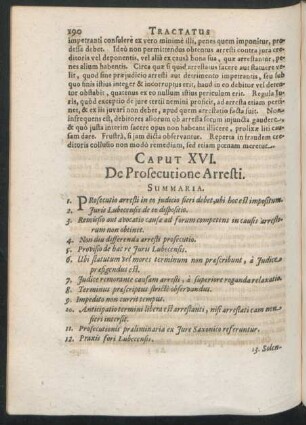 290 TRACTATUS
impetranti consulere ex vero minimè illi, penes quem imponitur, pro-
desse debet. Ideò non permittendus obtentus arresti contra jura cre-
ditoris vel deponentis, vel alia ex causa bona sua, quæ arrestantur, pe-
nes alium habentis. Circa quæ si quid arrestatus facere aut caussari ve-
lit, quod sine præjudicio arresti aut detrimento impetrantis, seu sal-
vo quo intuitu fieri poterit, audiendus erit, haud in eo debitor vel de-
tentor obstabit, quatenus ex re tamen illius utilitatem percipit. Regula Ju-
ris, quod exceptio de jure tertii nemini prosit, ad arresta etiam perti-
net, & ex iis juvari non debet, apud quem obtinentur aut fiunt. No-
insfrequens est, debitores aliorum ob arresta injuncta saltem gaudere,
& quò justa interim safters opus non habeant alieno, prolixe iisti cau-
sam dare. Frustra, si jam dicta observantur. Repeta in fraudem cre-
ditoris collusio non modò remedium, sed etiam pœnam meretur.
CAPUT XVI.
De Prosecutione Arresti.
SUMMARIA.
1. PRosecutio arresti in eo judicio fieri debet, ubi hoc est impositum.
2. Juris Lubecensis de eo dispositio.
3. Remissio aut avocatio causæ ad forum competens in causis arresto-
rum non obtinet.
4. Non diu differenda arresti prosecutio.
5. Provisio de hac re Juris Lubecensis.
6. Ubi statutum vel mores terminum non præscribunt, à Judice
præfigendus est.
7. Judice renuente causam arresti, à superiore rogandа relaxatio.
8. Terminus præscriptus strictè observandus.
9. Impedito non currit tempus.
10. Anticipatio termini libera est arrestanti, nisi arrestati eam non
fieri intersit.
11. Prosecutionis præliminaria ex Jure Saxonico referuntur.
12. Praxis fori Lubecensis.
13. Solen-